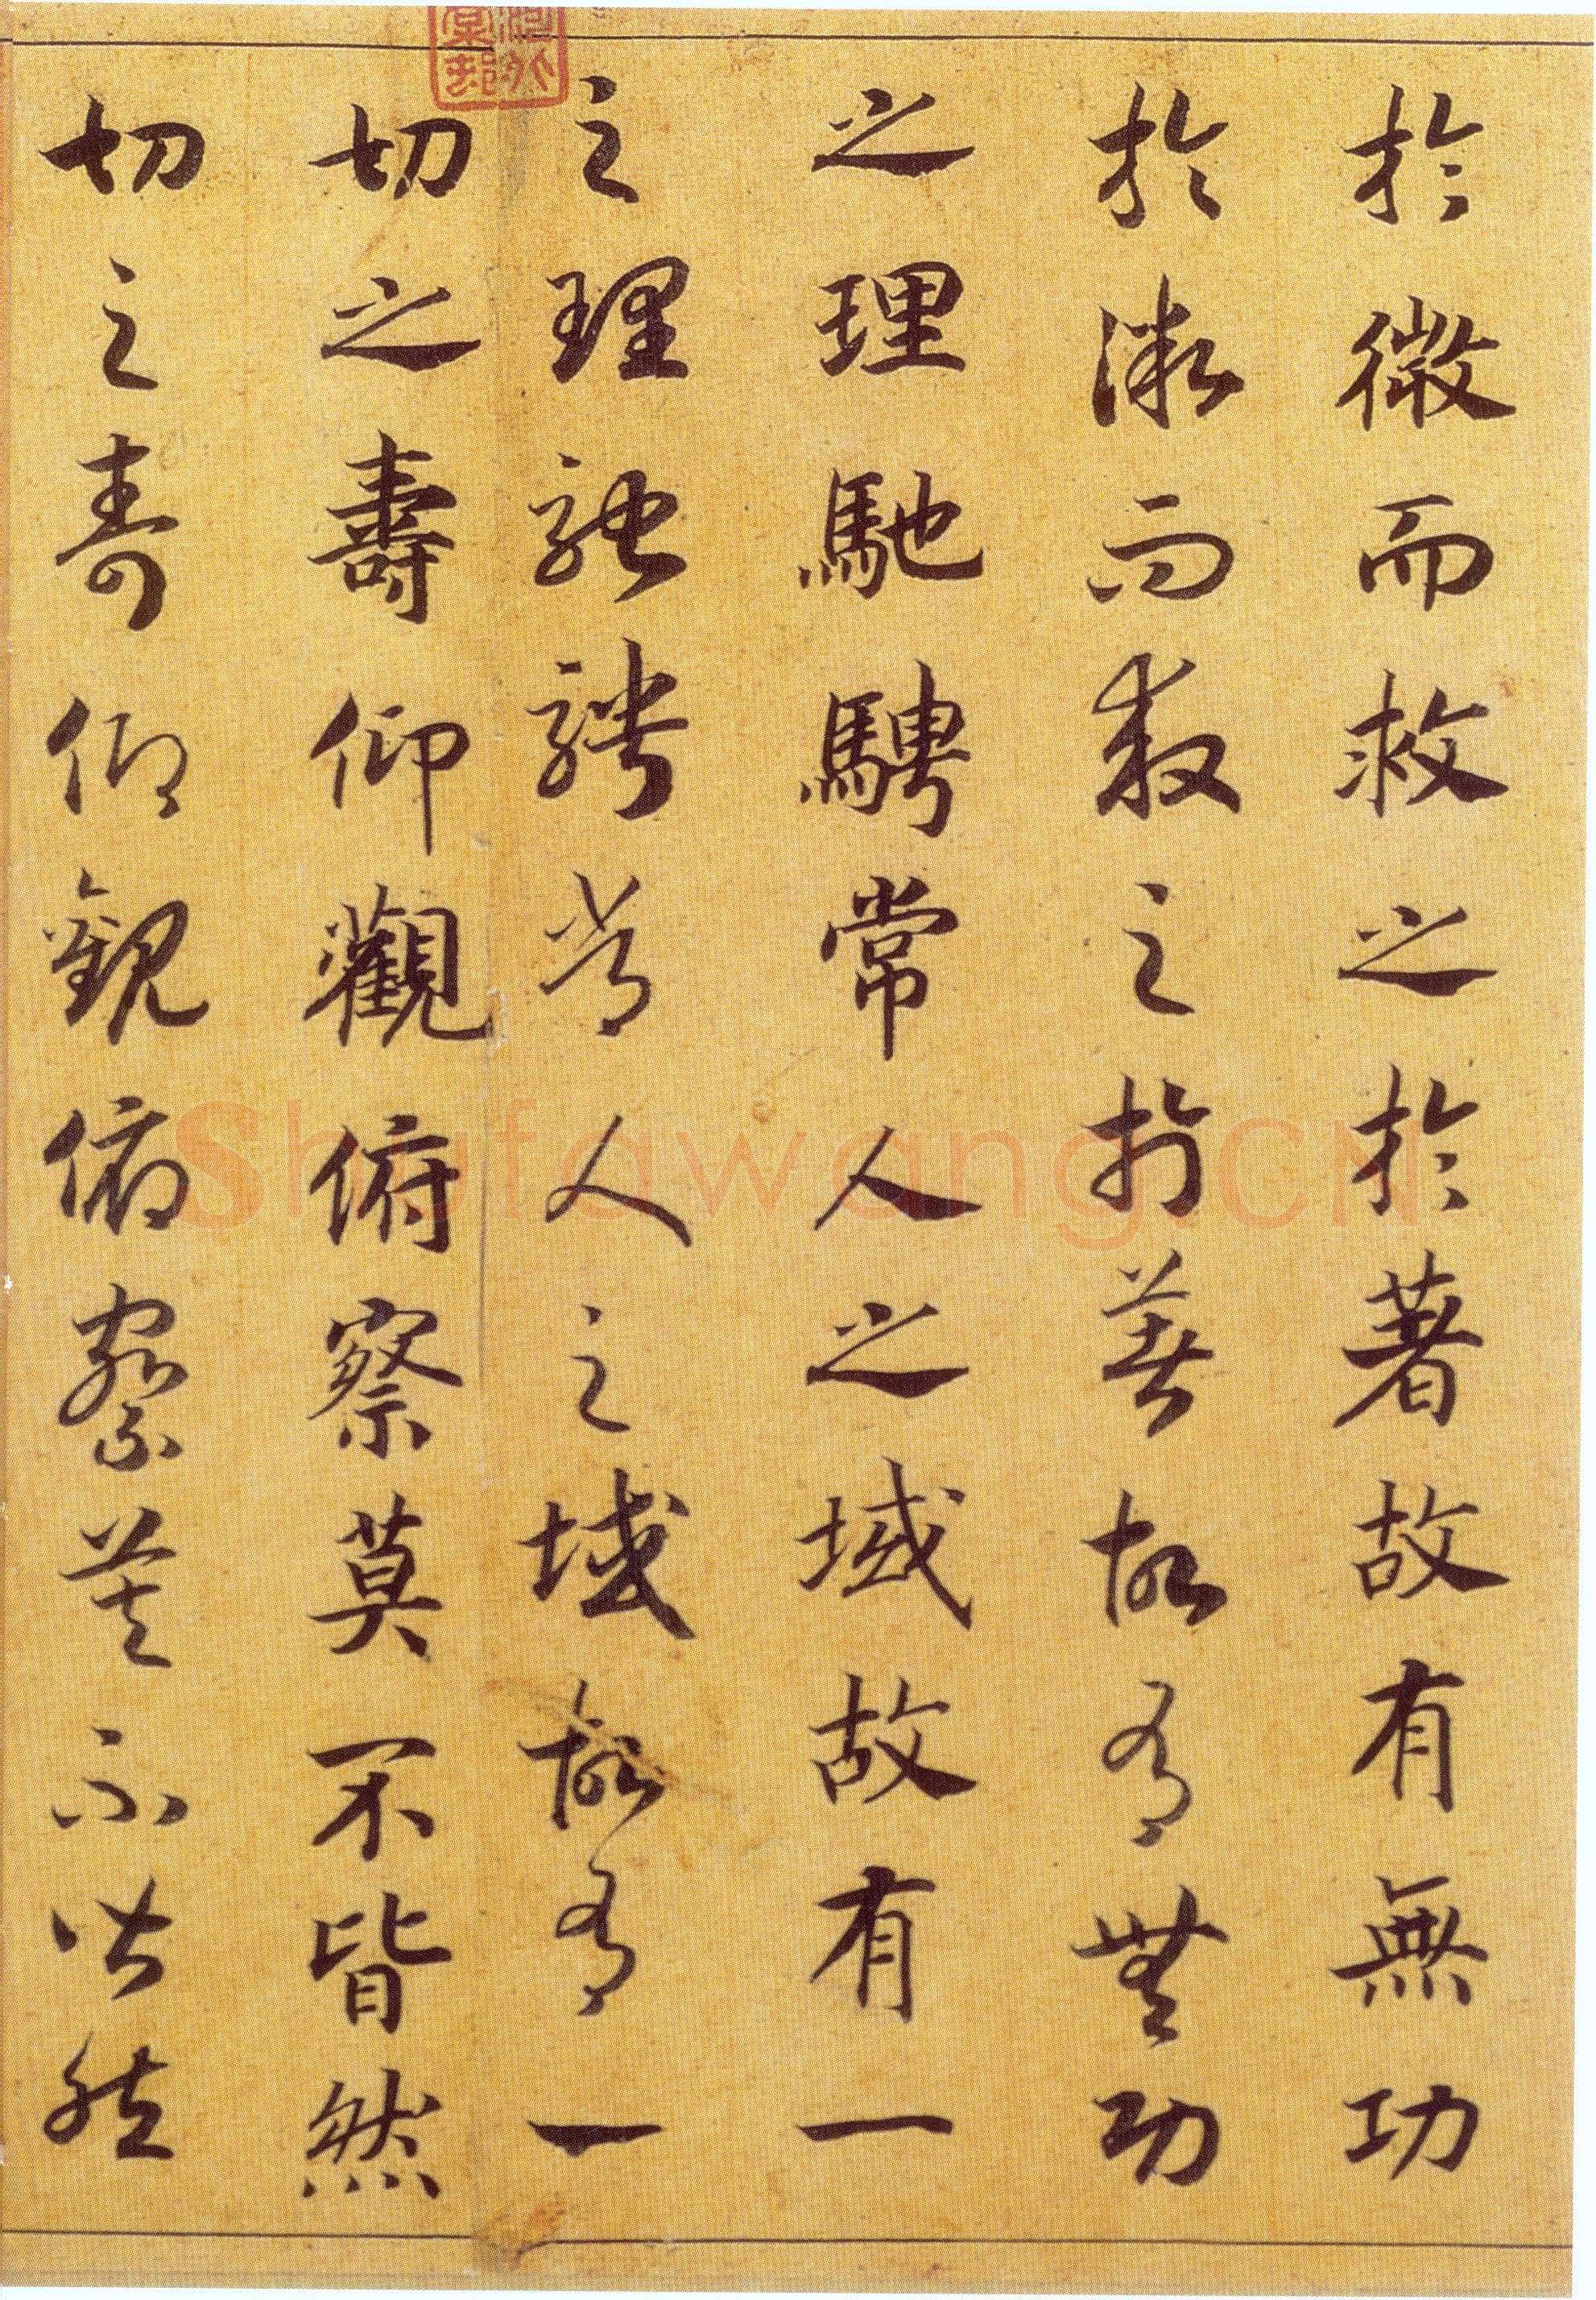 於微而救之於著故有無功
於微而救之於著故有無功
之理馳騁常人之域故有一
之理馳騁常人之域故有一
切之壽仰觀俯察莫不皆然
切之壽仰觀俯察莫不皆然
Shufawang.CN